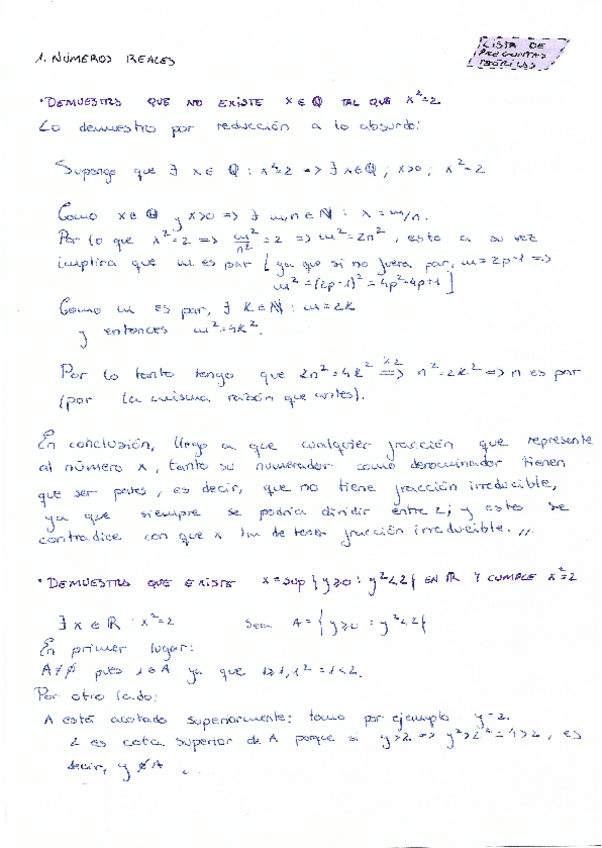 LISTA DE
PREGUNTAS
TEÓRICAS
1. NÚMEROS REALES
• DEMUESTRO QUE NO EXISTE x ∈ ℚ TAL QUE x²=2
Lo demuestro por reducción a lo absurdo:
Supongo que ∃ x ∈ ℚ : x²=2 => ∃ x ∈ ℚ ; x>0 ; x²=2
Como x ∈ ℚ y x>0 => ∃ m,n ∈ ℕ : x = m/n.
Por lo que x²=2 => m²/n² = 2 => m² = 2n² , esto a su vez
implica que m es par [ ya que si no fuera par, m = 2p-1 =>
m² = (2p-1)² = 4p²-4p+1 ]
Como m es par, ∃ k ∈ ℕ : m = 2k
y entonces m² = 4k².
Por lo tanto tengo que 2n² = 4k² => n² = 2k² => n es par
(por la misma razón que antes).
En conclusión, llego a que cualquier fracción que represente
al número x, tanto su numerador como denominador tienen
que ser pares, es decir, que no tiene fracción irreducible,
ya que siempre se podría dividir entre 2; y esto se
contradice con que x ha de tener fracción irreducible. //
• DEMUESTRO QUE EXISTE x = sup { y≥0 : y²<2 } EN ℝ Y CUMPLE x²=2
∃ x ∈ ℝ : x²=2 Sea A = { y≥0 : y²<2 }
En primer lugar:
A≠∅ pues 1 ∈ A ya que 1≥1, 1² = 1<2.
Por otro lado:
A está acotado superiormente: tomo por ejemplo y=2.
2 es cota superior de A porque si y>2 => y²>2² = 4>2 , es
decir, y ∉ A